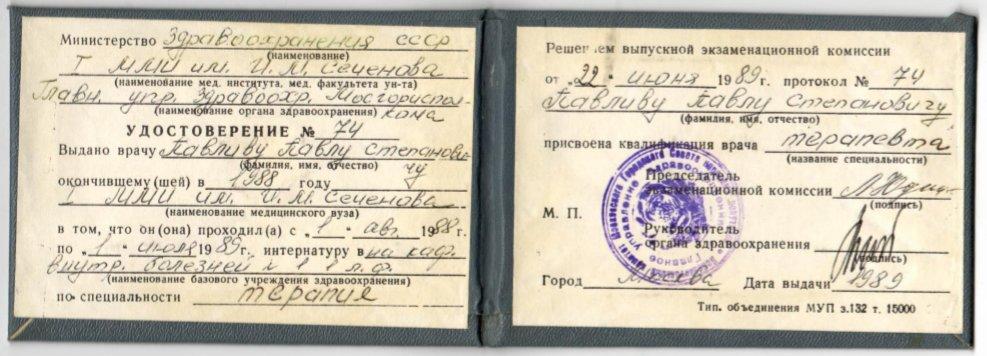 Министерство Здравоохранения СССР
(наименование)
I ММИ им. И.М. Сеченова
(наименование мед. института, мед. факультета ун-та)
Главн. упр. Здравоохр. Мосгориспол-
(наименование органа здравоохранения) кома
УДОСТОВЕРЕНИЕ № 74
Выдано врачу Павливу Павлу Степанови-
(фамилия, имя, отчество) чу
окончившему (шей) в 1988 году
I ММИ им. И.М. Сеченова
(наименование медицинского вуза)
в том, что он (она) проходил(а) с „1" авг 1988 г.
по „1" июля 1989 г. интернатуру в на каф.
внутр. болезней 1 л.ф.
(наименование базового учреждения здравоохранения)
по специальности терапия
Решением выпускной экзаменационной комиссии
от „22" июня 1989 г. протокол № 74
Павливу Павлу Степановичу
(фамилия, имя, отчество)
присвоена квалификация врача терапевта
(название специальности)
Председатель
экзаменационной комиссии
(подпись)
М. П.
Руководитель
органа здравоохранения
(подпись)
Город Москва Дата выдачи 1989
Тип. объединения МУП з.132 т. 15000